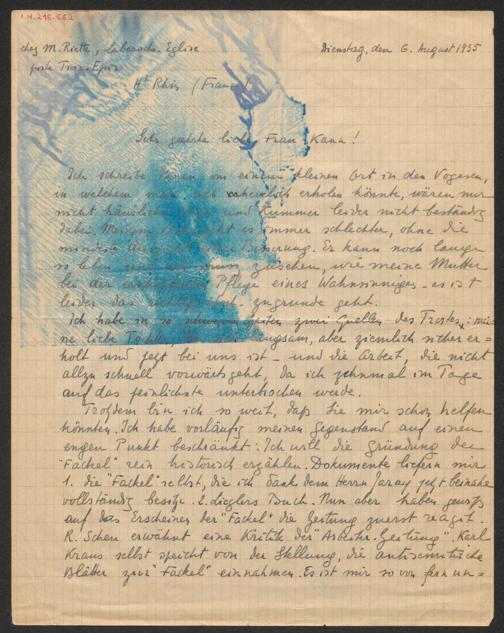 I.N. 240.662
chez M. Rieth, Labaroche-Eglise
poste Trois-Epis
Ht Rhin (France)
Dienstag, den 6. August 1935
Sehr geehrte liebe Frau Kann!
Ich schreibe Ihnen aus einem kleinen Ort in den Vogesen,
in welchem man sich erholen könnte, wären nur
nicht und Kummer leider nicht beständig
dabei. Meinem geht es immer schlechter, ohne die
Besserung. Er kann noch lange
so leben und zusehen, wie meine Mutter
bei der Pflege eines Wahnsinnigen – es ist
leider das zugrunde geht.
Ich habe in so zwei Quellen des Trostes: mei=
ne liebe langsam, aber ziemlich sicher er=
holt und jetzt bei uns ist – und die Arbeit, die nicht
allzu schnell vorwärtsgeht, da ich zehnmal im Tage
auf das peinlichste unterbrochen werde.
Trotzdem bin ich so weit, daß Sie mir schon helfen
könnten. Ich habe vorläufig meinen Gegenstand auf einen
engen Punkt beschränkt: Ich will die Gründung der
"Fackel" rein historisch erzählen. Dokumente liefern mir
1. die "Fackel" selbst, die ich dank dem Herrn Jaray jetzt beinahe
vollständig besitze. 2. Lieglers Buch. Nun aber haben gewiß
auf das Erscheinen der "Fackel" die Zeitung zuerst reagit.
R. Scheu erwähnt eine Kritik der "Arbeiter-Zeitung". Karl
Kraus selbst spricht von der Stellung, die antisemitische
Blätter zur "Fackel" einnahmen. Es ist mir so von fern un=